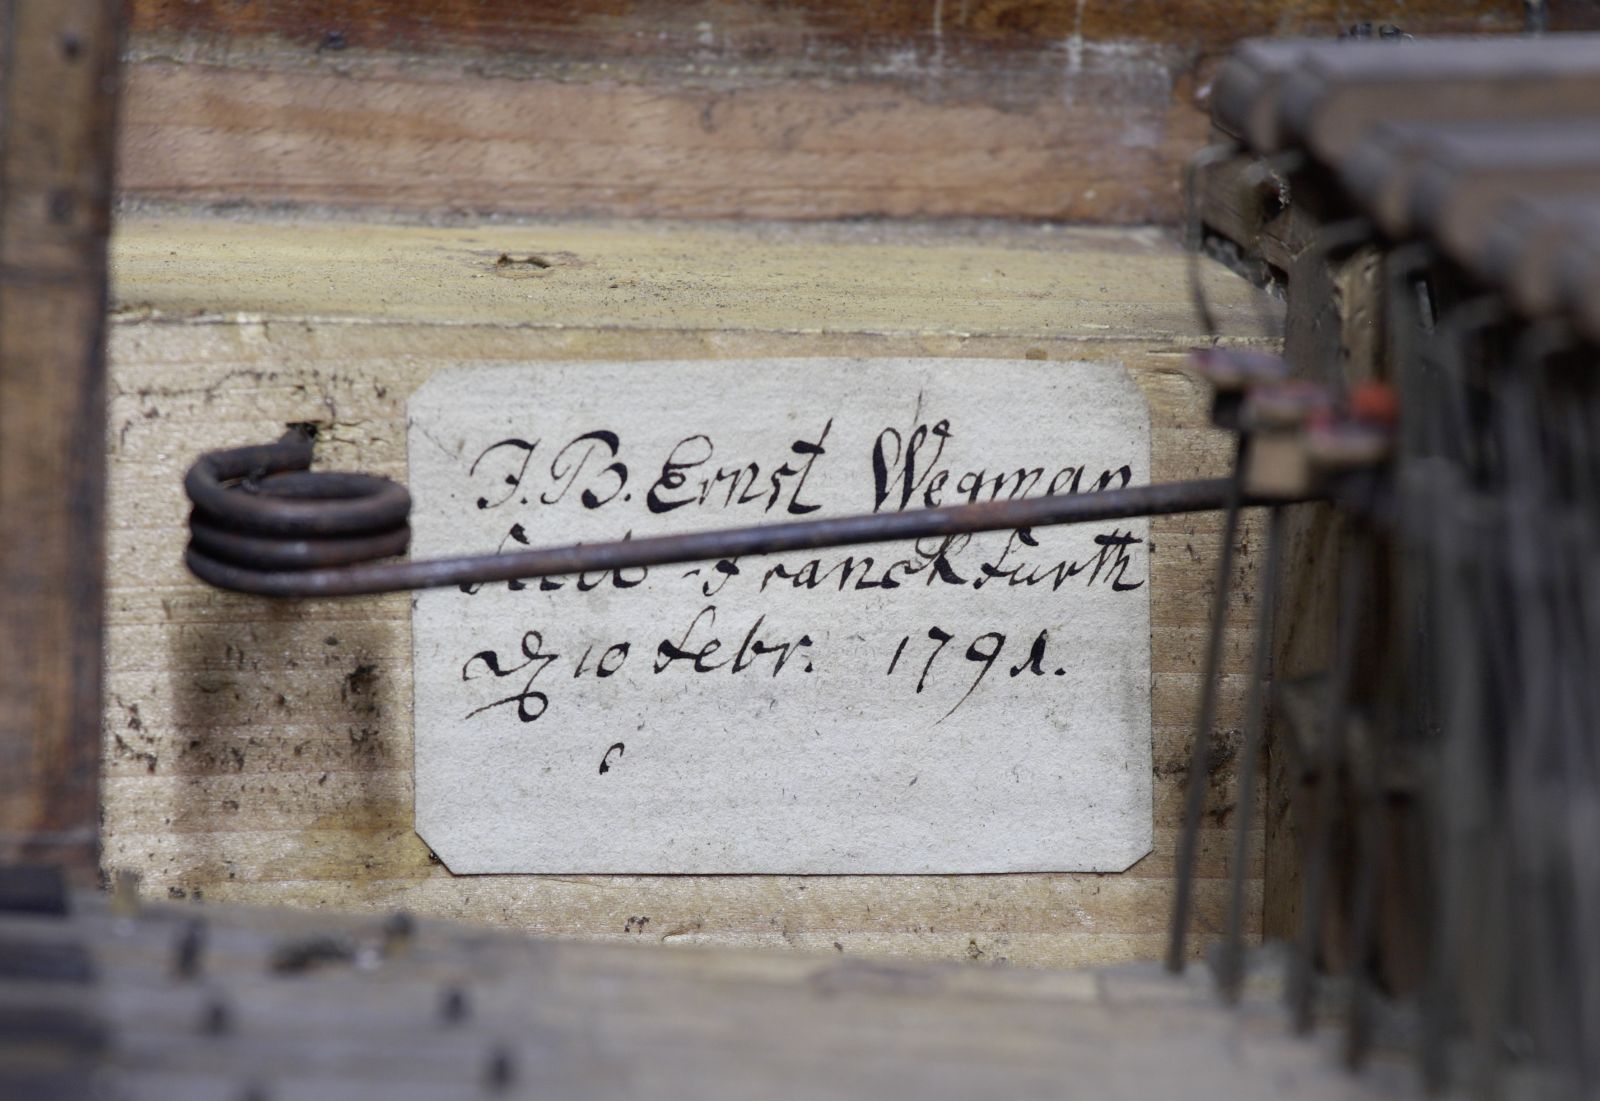 J. B. Ernst Wegman
Franckfurth
10 Febr. 1791.